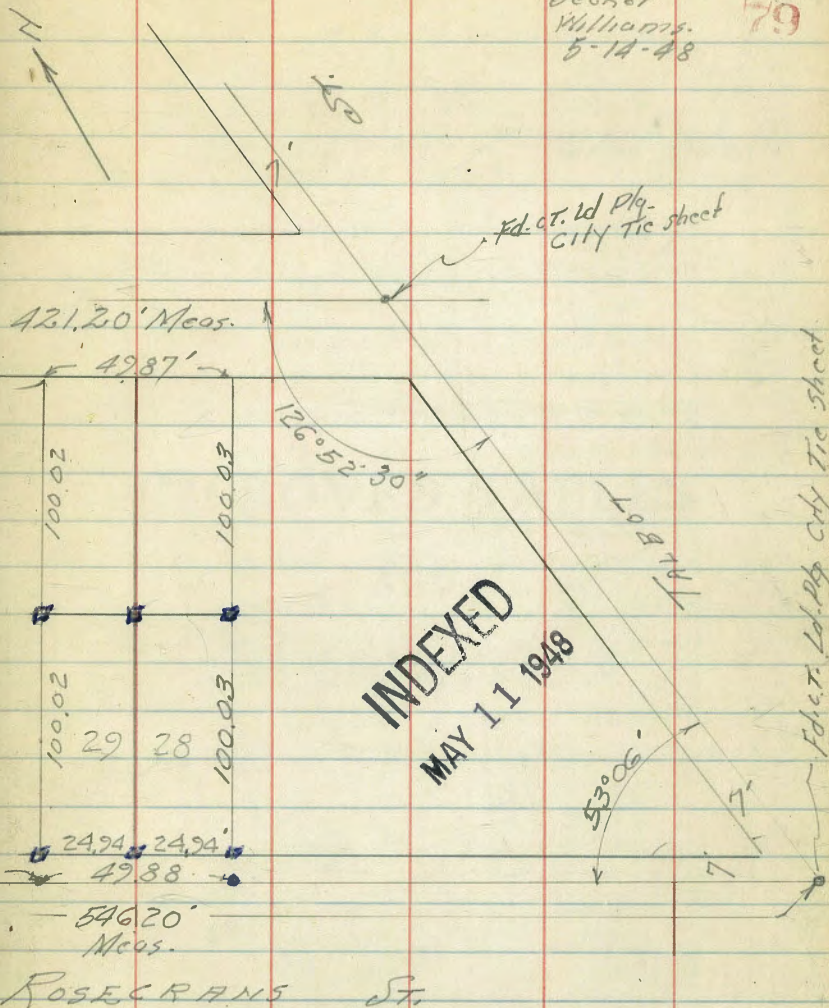 Williams.
5-14-48
79
N
St.
7'
Fd. c.T. Ld Plg.
City Tie sheet
421.20' Meas.
49.87'
126°52'30"
100.02
100.03
TALBOT
Fd. c.T. Ld. Plg City Tie Sheet
INDEXED
MAY 11 1948
100.02
29
28
100.03
53°06'
7'
7'
24.94
24.94'
49.88
546.20'
Meas.
ROSECRANS ST.